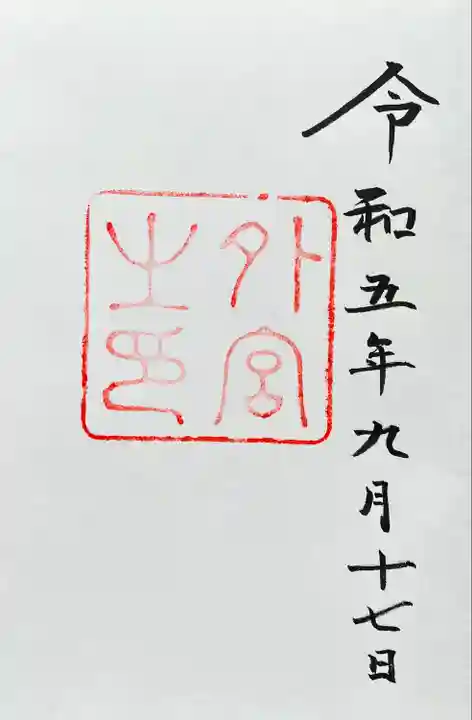 令和五年九月十七日
外宮
之印